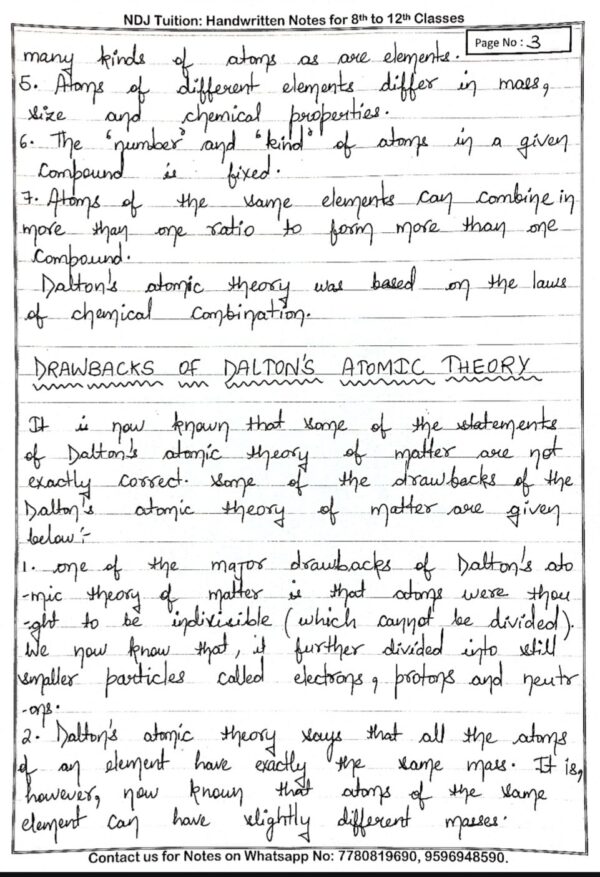 NDJ Tuition: Handwritten Notes for 8th to 12th Classes
Page No : 3
many kinds of atoms as are elements.
5. Atoms of different elements differ in mass,
size and chemical properties.
6. The 'number' and 'kind' of atoms in a given
compound is fixed.
7. Atoms of the same elements can combine in
more than one ratio to form more than one
compound.
Dalton's atomic theory was based on the laws
of chemical combination.
DRAWBACKS OF DALTON'S ATOMIC THEORY
It is now known that some of the statements
of Dalton's atomic theory of matter are not
exactly correct. some of the drawbacks of the
Dalton's atomic theory of matter are given
below:-
1. one of the major drawbacks of Dalton's ato
-mic theory of matter is that atoms were thou
-ght to be indivisible (which cannot be divided).
We now know that, it further divided into still
smaller particles called electrons, protons and neutr
-ons.
2. Dalton's atomic theory says that all the atoms
of an element have exactly the same mass. It is,
however, now known that atoms of the same
element can have slightly different masses.
Contact us for Notes on Whatsapp No: 7780819690, 9596948590.